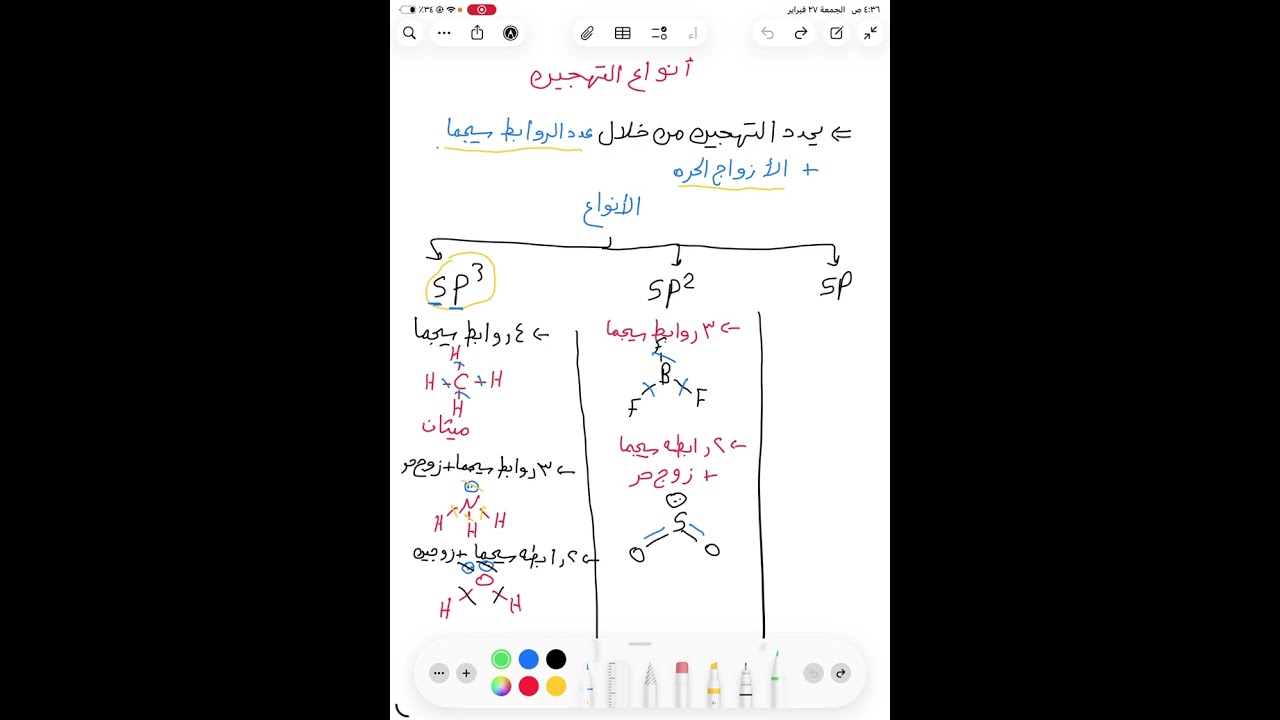 ٤:٣٦ ص الجمعة ٢٧ فبراير
٣٤٪
أنواع التهجين
⇐ يحدد التهجين من خلال عدد الروابط سيجما
+ الأزواج الحره
الأنواع
SP
SP2
SP3
← ٣ روابط سيجما
F
B
F F
← ٢ رابطه سيجما
+ زوج حر
S
O O
← ٤ روابط سيجما
H
H C H
H
ميثان
← ٣ روابط سيجما + زوج حر
N
H H H
← ٢ رابطه سيجما + زوجين
O
H H